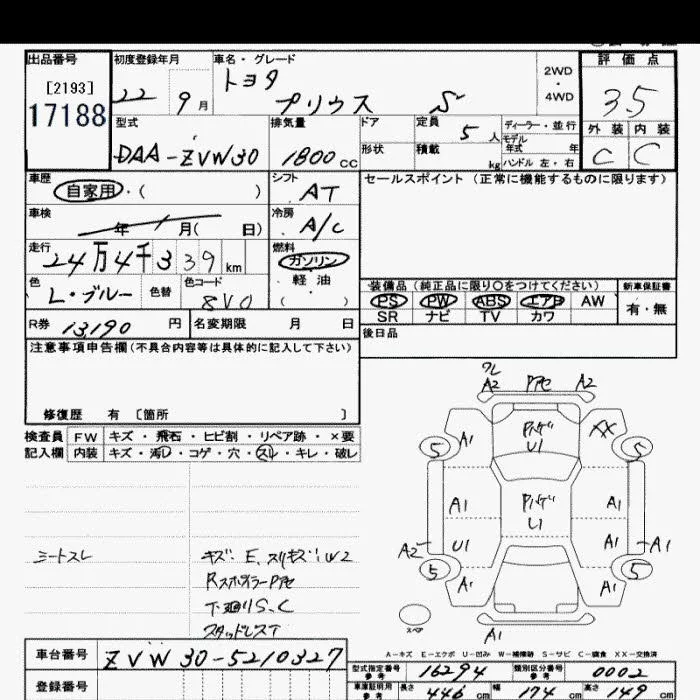 出品番号 初度登録年月 車名・グレード 評価点
[2193] トヨタ 2WD
17188 22 9月 プリウス S ・ 4WD 3.5
型式 排気量 ドア 定員 5人 ディーラー・並行 外装 内装
DAA-ZVW30 1800cc 形状 積載 kg モデル年式 年 C C
ハンドル 左・右
車歴 自家用・( ) シフト AT セールスポイント(正常に機能するものに限ります)
車検 年 月( 日) 冷房 A/C
走行 24万4千339km 燃料 ガソリン
色 L・ブルー 色替 色コード 8V0 軽油 ( )
装備品(純正品に限り〇をつけてください) 新車保証書
PS PW ABS エアB AW 有・無
SR ナビ TV カワ
R券 13190円 名変期限 月 日 後日品
注意事項申告欄(不具合内容等は具体的に記入して下さい)
修復歴 有 〔箇所 〕
検査員 FW キズ・飛石・ヒビ割・リペア跡・×要
記入欄 内装 キズ・汚レ・コゲ・穴・スレ・キレ・破レ
A2 A2
A1 U1 XX
5 5
A1 A1
L1
A2 U1 A1 A1
5 A1 A1 5
スペア A1
シートスレ キズ・E、スリキズ・W2
下廻りS、C
スタッドレスT
A-キズ E-エクボ U-凹み W-補修跡 S-サビ C-腐食 XX-交換済
車台番号 ZVW30-5210327
登録番号 型式指定番号 参考 16294 類別区分番号 参考 0002
車庫証明用 参考 長さ 446cm 幅 174cm 高さ 149cm